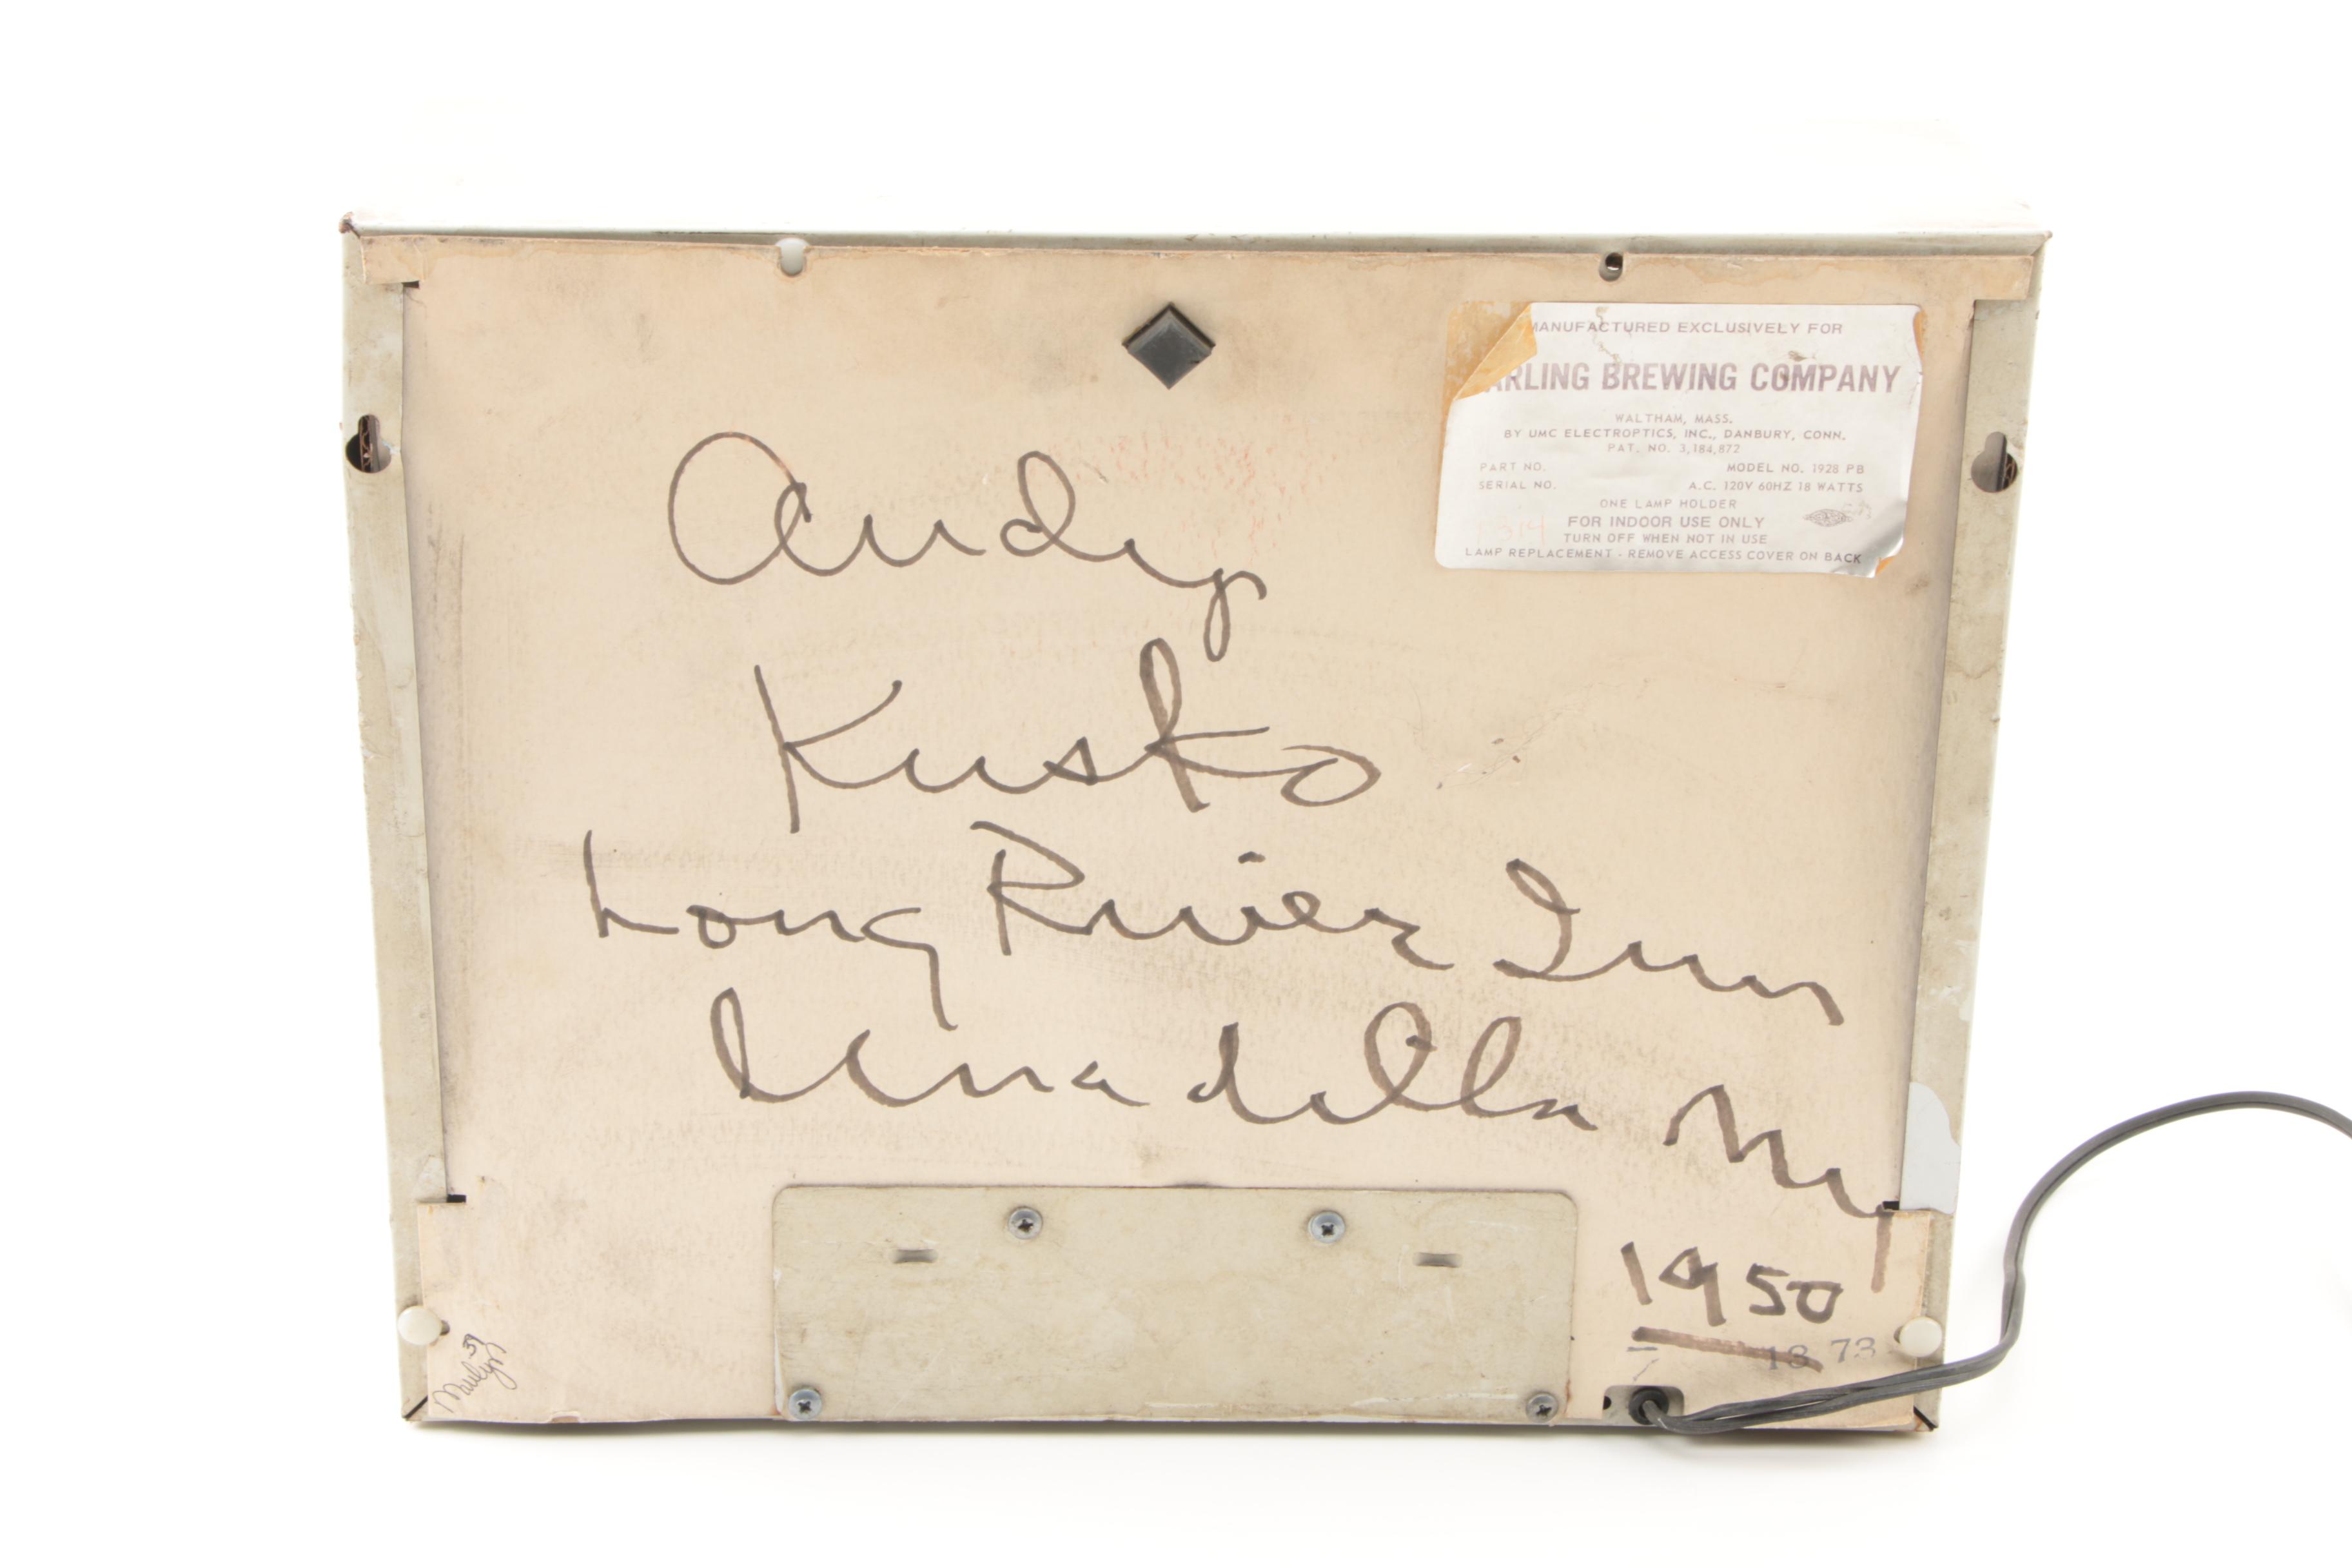 MANUFACTURED EXCLUSIVELY FOR
ARLING BREWING COMPANY
WALTHAM, MASS.
BY UMC ELECTROPTICS, INC., DANBURY, CONN.
PAT. NO. 3,184,872
PART NO. MODEL NO. 1928 PB
SERIAL NO. A.C. 120V 60HZ 18 WATTS
ONE LAMP HOLDER
FOR INDOOR USE ONLY
TURN OFF WHEN NOT IN USE
LAMP REPLACEMENT - REMOVE ACCESS COVER ON BACK
Andy
Kusko
Long River Inn
Unadilla NY
1950
13 73